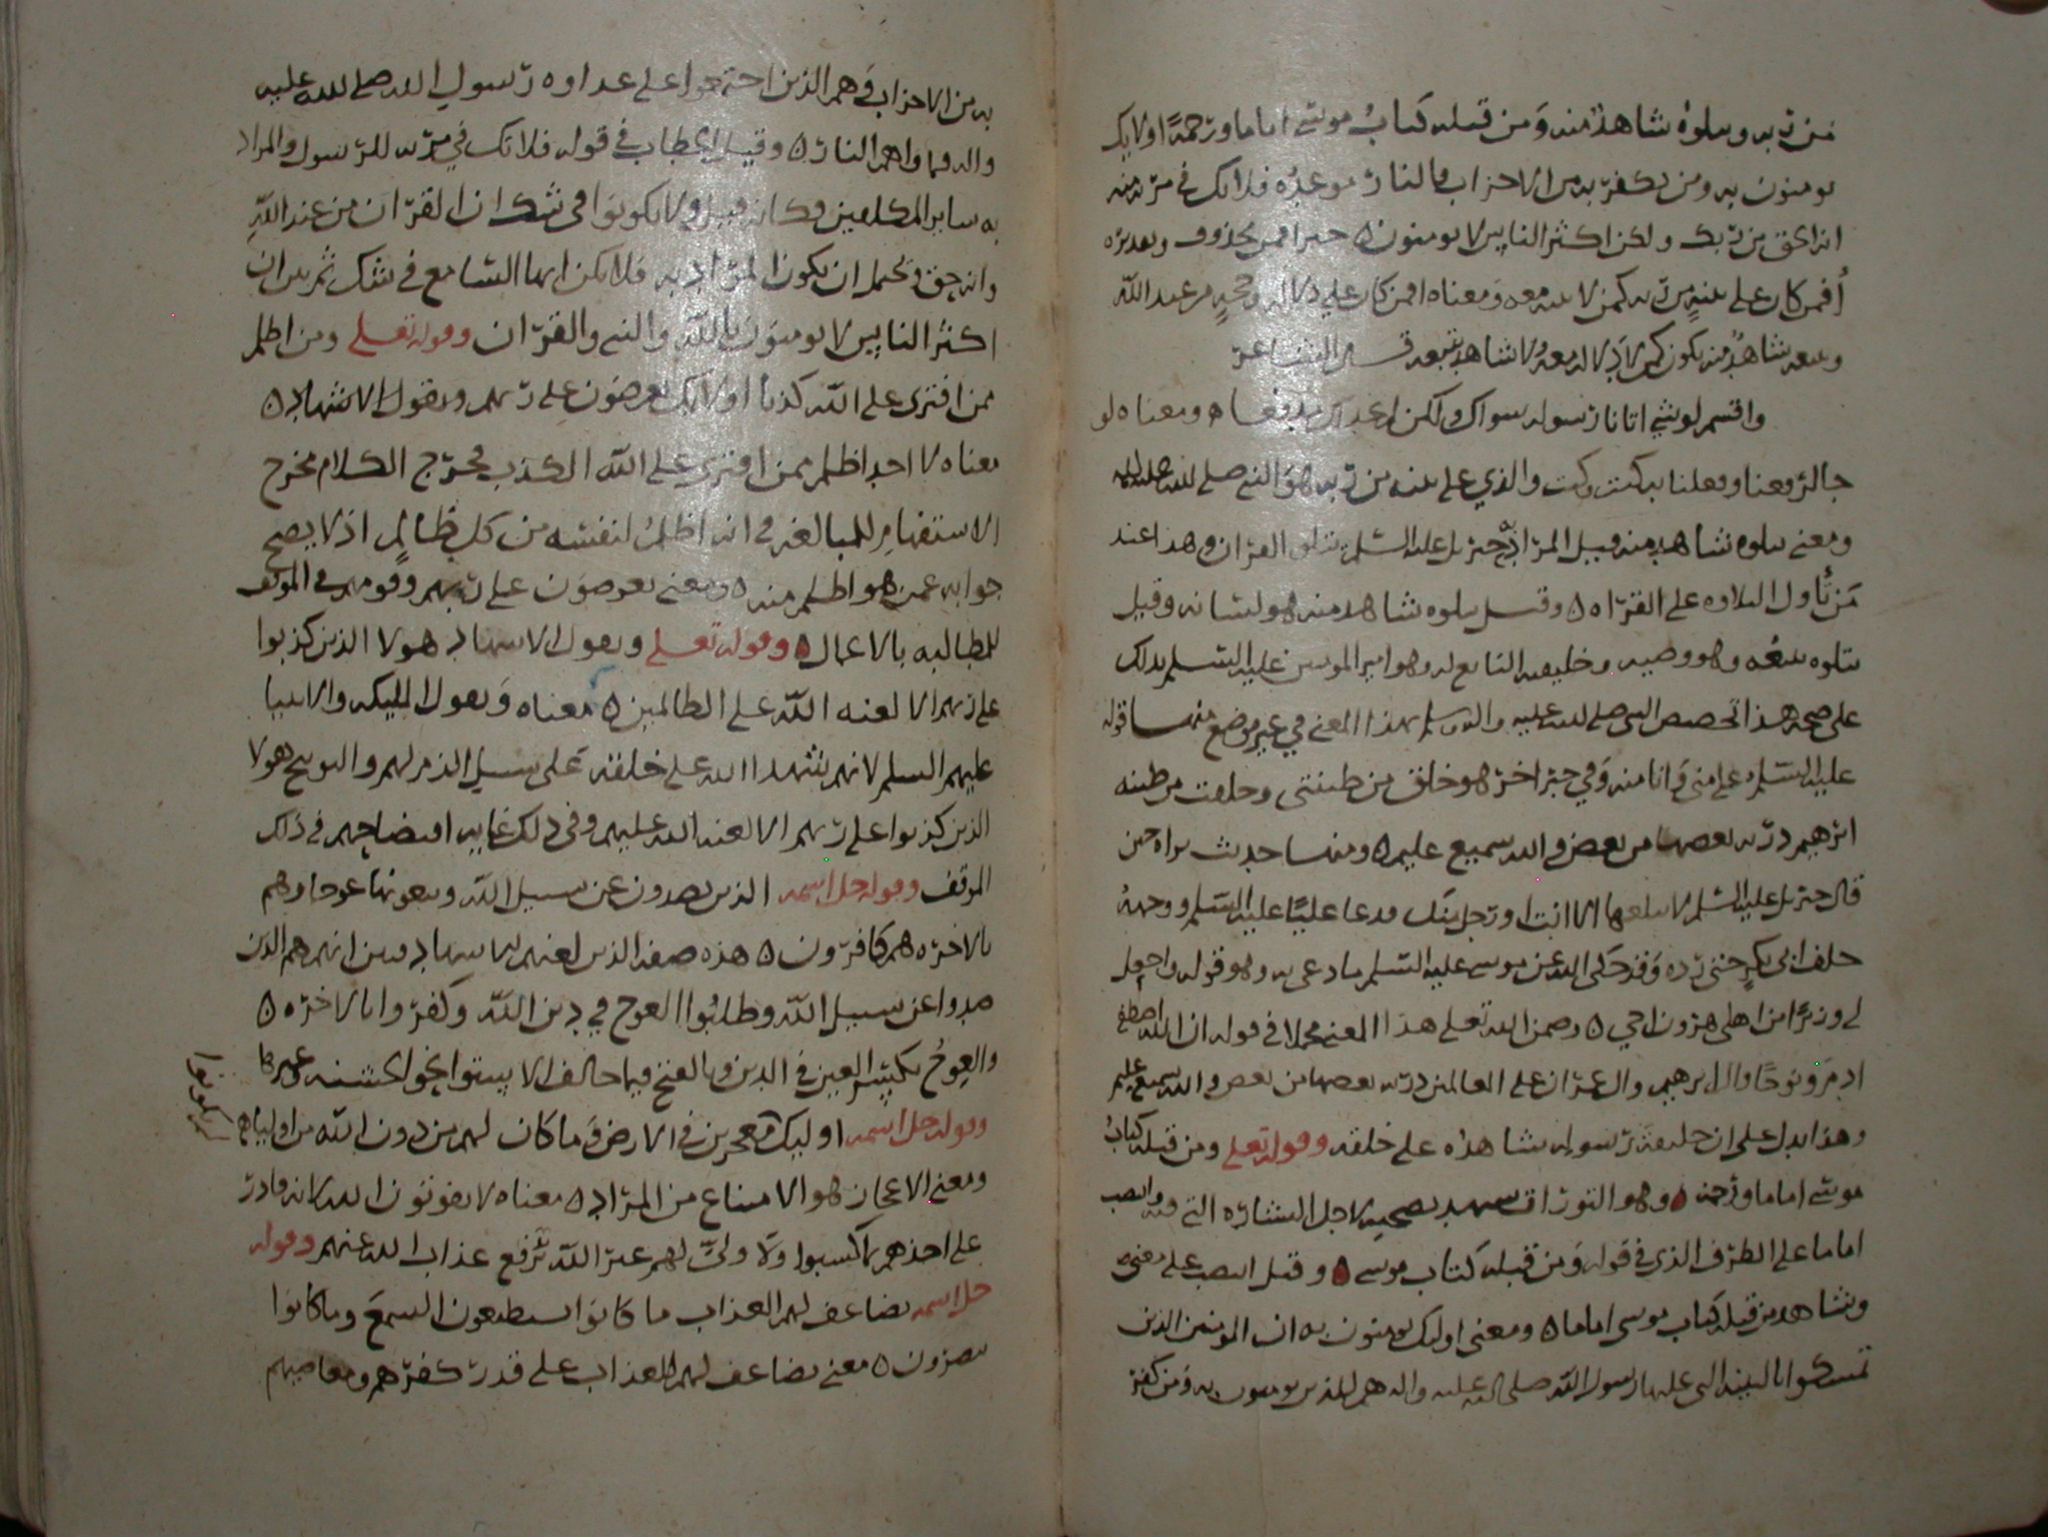 من ربه ويتلوه شاهد منه ومن قبله كتاب موسى اماما ورحمة اولايك
يومنون به ومن يكفر به من الاحزاب فالنار موعده فلا تك في مرية منه
انه الحق من ربك ولكن اكثر الناس لا يومنون ٥ خبر افمن محذوف وتقديره
أفمن كان على بينة من ربه كمن لا بينه معه ومعناه افمن كان على دلاله وحجة من عند الله
ومعه شاهد منه يكون كمن لا دلاله معه ولا شاهد يتبعه قــال الشاعر
واقسم لو شي اتانا رسوله سواك ولكن لم نجد لك مدفعا ٥ ومعناه لو
جا لدفعنا وفعلنا به كيت وكيت والذي على بينه من ربه هو النبي صلى الله عليه
ومعنى يتلوه شاهد منه قيل المراد جبريل عليه السلم يتلو القران وهذا عند
من تأول التلاوه على القراه ٥ وقيل يتلوه شاهد منه هو لسانه وقيل
يتلوه يتبعه وهو وصيه وخليفته التابع له وهو امير المومنين عليه السلم يدلك
على صحه هذا تخصيص النبي صلى الله عليه واله وسلم بهذا المعنى في غير موضع منها قوله
عليه السلم علي مني وانا منه وفي خبر اخر هو خلق من طينتي وخلقت من طينه
ابرهيم ذريه بعضها من بعض والله سميع عليم ٥ ومنها حديث براه حين
قال جبريل عليه السلم لا يبلغها الا انت او رجل منك فدعا عليا عليه السلم ووجهه
خلف ابي بكر حتى رده وقد حكى الله عن موسى عليه السلم ما دعى به وهو قوله واجعل
لي وزيرا من اهلي هرون اخي ٥ وضمن الله تعلى هذا المعنى مجملا في قوله ان الله اصطفى
ادم ونوحا وال ابرهيم وال عمران على العالمين ذريه بعضها من بعض والله سميع عليم
وهذا يدل على ان خليفة رسوله شاهده على خلقه وقوله تعلى ومن قبله كتاب
موسى اماما ورحمه ٥ وهو التوراة يشهد بصحته لاجل البشاره التي فيه وانتصب
اماما على الظرف الذي في قوله ومن قبله كتاب موسى ٥ وقيل انتصب على معنى
وشاهد من قبله كتاب موسى اماما ٥ ومعنى اوليك يومنون به ان المومنين الذين
تمسكوا بالبينه التي عليها رسول الله صلى الله عليه واله هم الذين يومنون به ومن كفر
به من الاحزاب وهم الذين اجتمعوا على عداوه رسول الله صلى الله عليه
واله وماواهم النار ٥ وقيل الخطاب في قوله فلا تك في مريه للرسول والمراد
به ساير المكلفين فكانه قيل ولا يكونوا في شك ان القران من عند الله
وانه حق ويحتمل ان يكون المراد به فلا تكن ايها السامع في شك ثم بين ان
اكثر الناس لا يومنون بالله والنبي والقران وقوله تعلى ومن اظلم
ممن افترى على الله كذبا اولايك يعرضون على ربهم ويقول الاشهاد ٥
معناه لا احد اظلم ممن افترى على الله الكذب مخرج الكلام مخرج
الاستفهام للمبالغه في انه اظلم لنفسه من كل ظالم اذ لا يصح
جوابه عمن هو اظلم منه ٥ ومعنى يعرضون على ربهم وقوفهم في الموقف
للمطالبه بالاعمال ٥ وقوله تعلى ويقول الاشهاد هولا الذين كذبوا
على ربهم الا لعنه الله على الظالمين ٥ معناه ويقول المليكه والانبيا
عليهم السلم لانهم شهدا الله على خلقه على سبيل الذم لهم والتوبيخ هولا
الذين كذبوا على ربهم الا لعنه الله عليهم وفي ذلك غايه افتضاحهم في ذلك
الموقف وقوله جل اسمه الذين يصدون عن سبيل الله ويبغونها عوجا وهم
بالاخره هم كافرون ٥ هذه صفه الذين لعنهم الاشهاد وبين انهم هم الذين
صدوا عن سبيل الله وطلبوا العوج في دين الله وكفروا بالاخره ٥
والعوج بكسر العين في الدين وبالفتح فيما خالف الاستوا نحو الخشبه وغيرها
وقوله جل اسمه اوليك معجزين في الارض وما كان لهم من دون الله من اولياهم
لم يكونوا
ومعنى الاعجاز هو الامتناع من المراد ٥ معناه لا يفوتون الله لانه قادر
على اخذهم بما كسبوا ولا ولي لهم غير الله يرفع عذاب الله عنهم وقوله
جل اسمه يضاعف لهم العذاب ما كانوا يستطيعون السمع وما كانوا
يبصرون ٥ معنى يضاعف لهم العذاب على قدر كفرهم ومعاصيهم